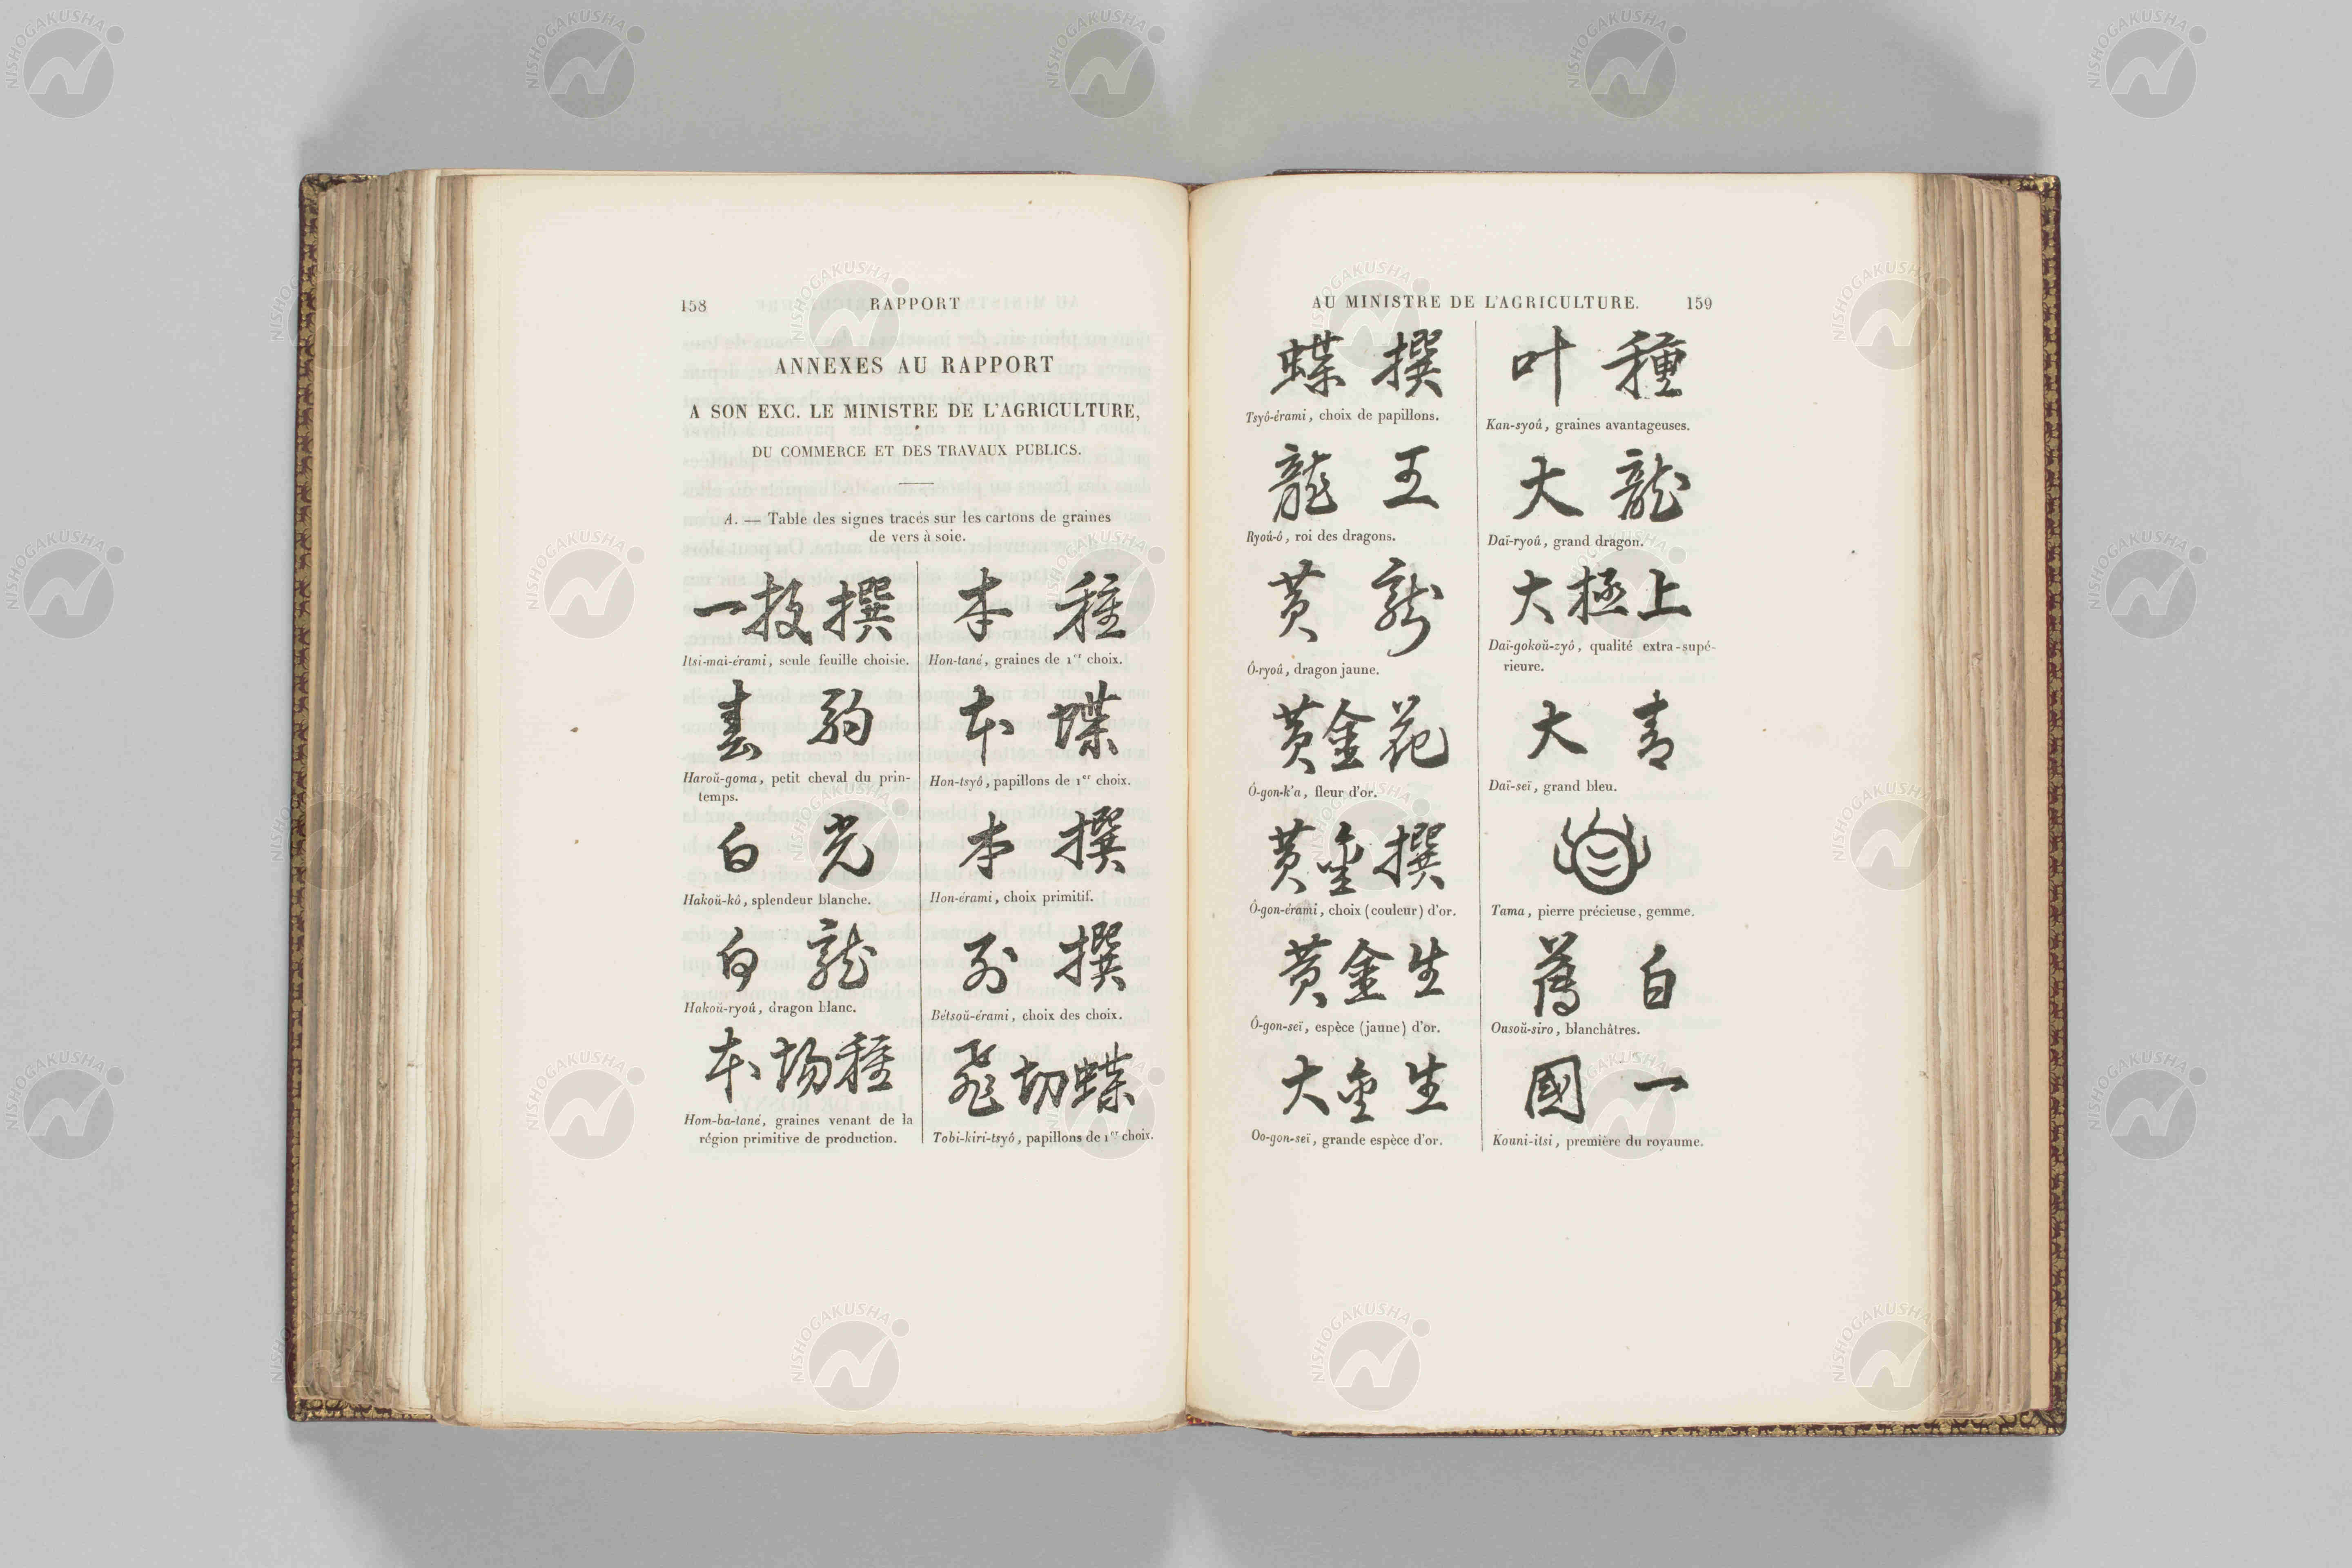 158
RAPPORT
ANNEXES AU RAPPORT
A SON EXC. LE MINISTRE DE L'AGRICULTURE,
DU COMMERCE ET DES TRAVAUX PUBLICS.
A. — Table des signes tracés sur les cartons de graines
de vers à soie.
一枚撰
Itsi-mai-érami, seule feuille choisie.
春駒
Haroŭ-goma, petit cheval du prin-
temps.
白光
Hakoŭ-kô, splendeur blanche.
白龍
Hakoŭ-ryoû, dragon blanc.
本場種
Hom-ba-tané, graines venant de la
région primitive de production.
本種
Hon-tané, graines de 1er choix.
本蝶
Hon-tsyô, papillons de 1er choix.
本撰
Hon-érami, choix primitif.
別撰
Bétsoŭ-érami, choix des choix.
飛切蝶
Tobi-kiri-tsyô, papillons de 1er choix.
AU MINISTRE DE L'AGRICULTURE.
159
蝶撰
Tsyô-érami, choix de papillons.
龍王
Ryoû-ô, roi des dragons.
黄龍
Ô-ryoû, dragon jaune.
黄金花
Ô-gon-k'a, fleur d'or.
黄金撰
Ô-gon-érami, choix (couleur) d'or.
黄金生
Ô-gon-seï, espèce (jaune) d'or.
大金生
Oo-gon-seï, grande espèce d'or.
叶種
Kan-syoû, graines avantageuses.
大龍
Daï-ryoû, grand dragon.
大極上
Daï-gokoŭ-zyô, qualité extra-supé-
rieure.
大青
Daï-seï, grand bleu.
Tama, pierre précieuse, gemme.
薄白
Ousoŭ-siro, blanchâtres.
國一
Kouni-itsi, première du royaume.
NISHOGAKUSHA